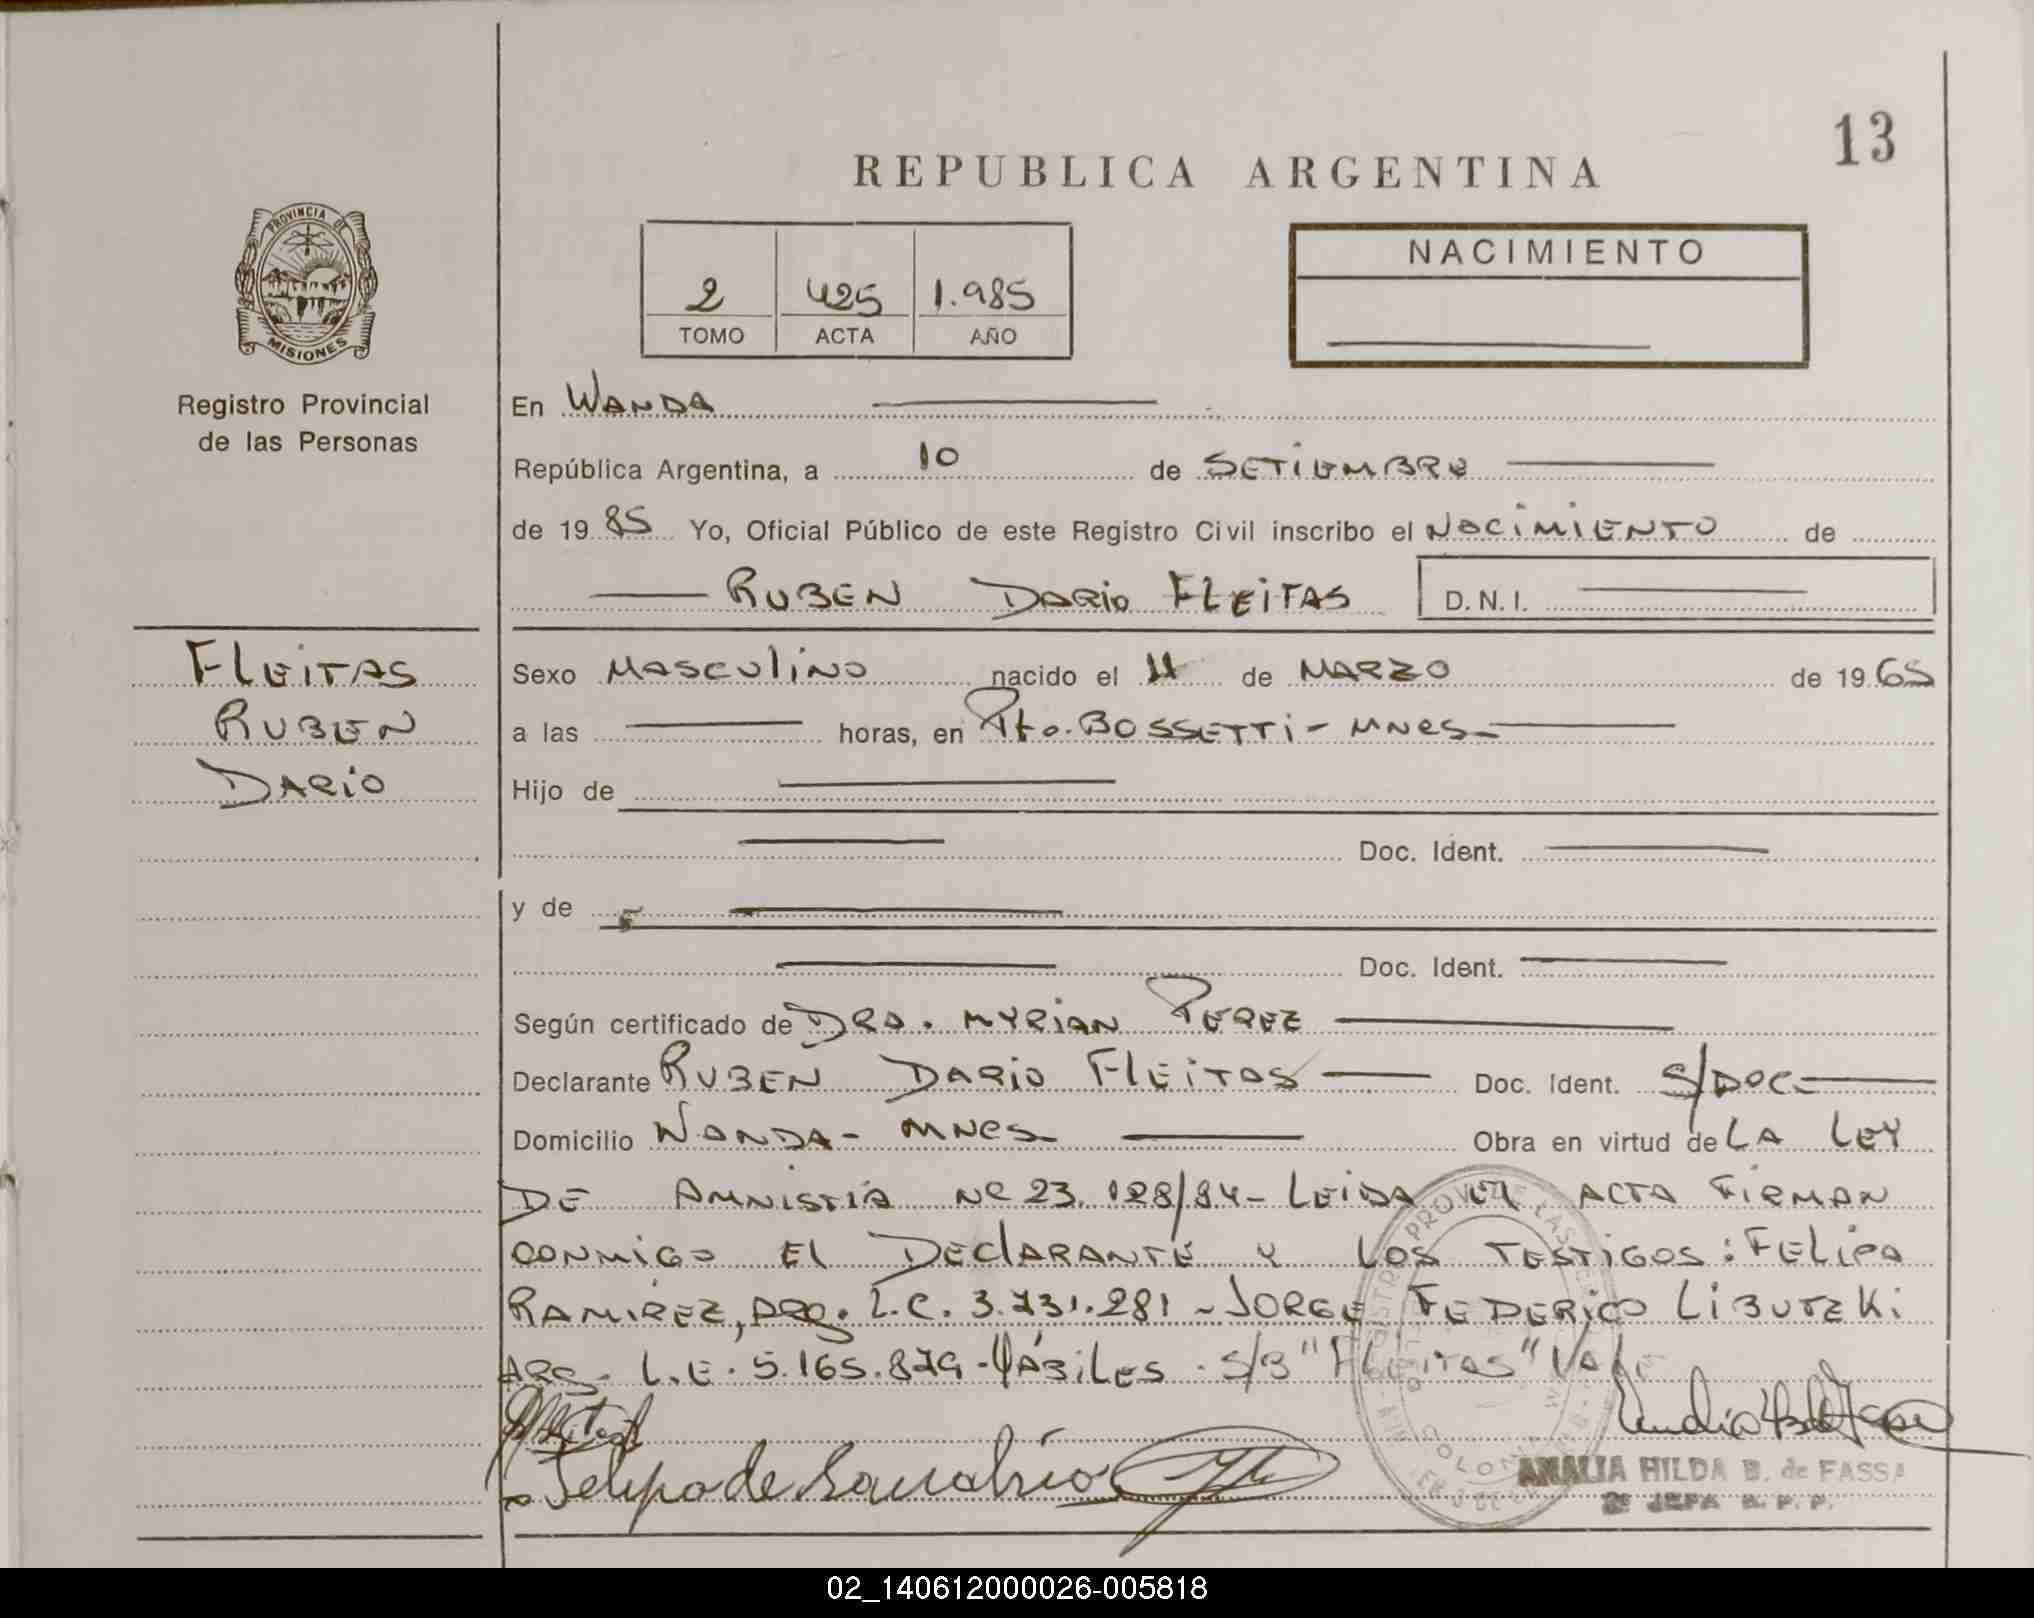 13
REPUBLICA ARGENTINA
PROVINCIA DE
MISIONES
Registro Provincial
de las Personas
2 425 1.985
TOMO ACTA AÑO
NACIMIENTO
En WANDA
República Argentina, a 10 de SETIEMBRE
de 19 85 Yo, Oficial Público de este Registro Civil inscribo el NACIMIENTO de
RUBEN DARIO FLEITAS D.N.I.
FLEITAS
RUBEN
DARIO
Sexo MASCULINO nacido el 11 de MARZO de 19 65
a las horas, en Pto. BOSSETTI - MNES -
Hijo de
Doc. Ident.
y de
Doc. Ident.
Según certificado de DRA. MYRIAN PEREZ
Declarante RUBEN DARIO FLEITAS Doc. Ident. S/DOC.
Domicilio WANDA - MNES Obra en virtud de LA LEY
DE AMNISTIA Nº 23.128/84 - LEIDA EL ACTA FIRMAN
CONMIGO EL DECLARANTE Y LOS TESTIGOS: FELIPA
RAMIREZ, ARG. L.C. 3.731.281 - JORGE FEDERICO LIBUTZKI
ARG. L.E. 5.165.879 - HÁBILES - S/B "FLEITAS" VALE
Felipa de Sanabria
AMALIA HILDA B. de FASSA
2º JEFA R. P. P.
02_140612000026-005818